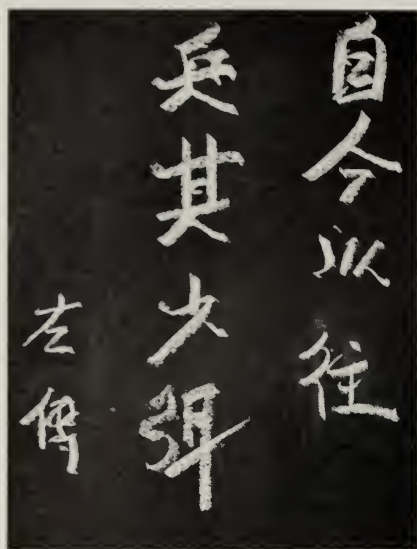 自今以往
兵其少弭
左傳